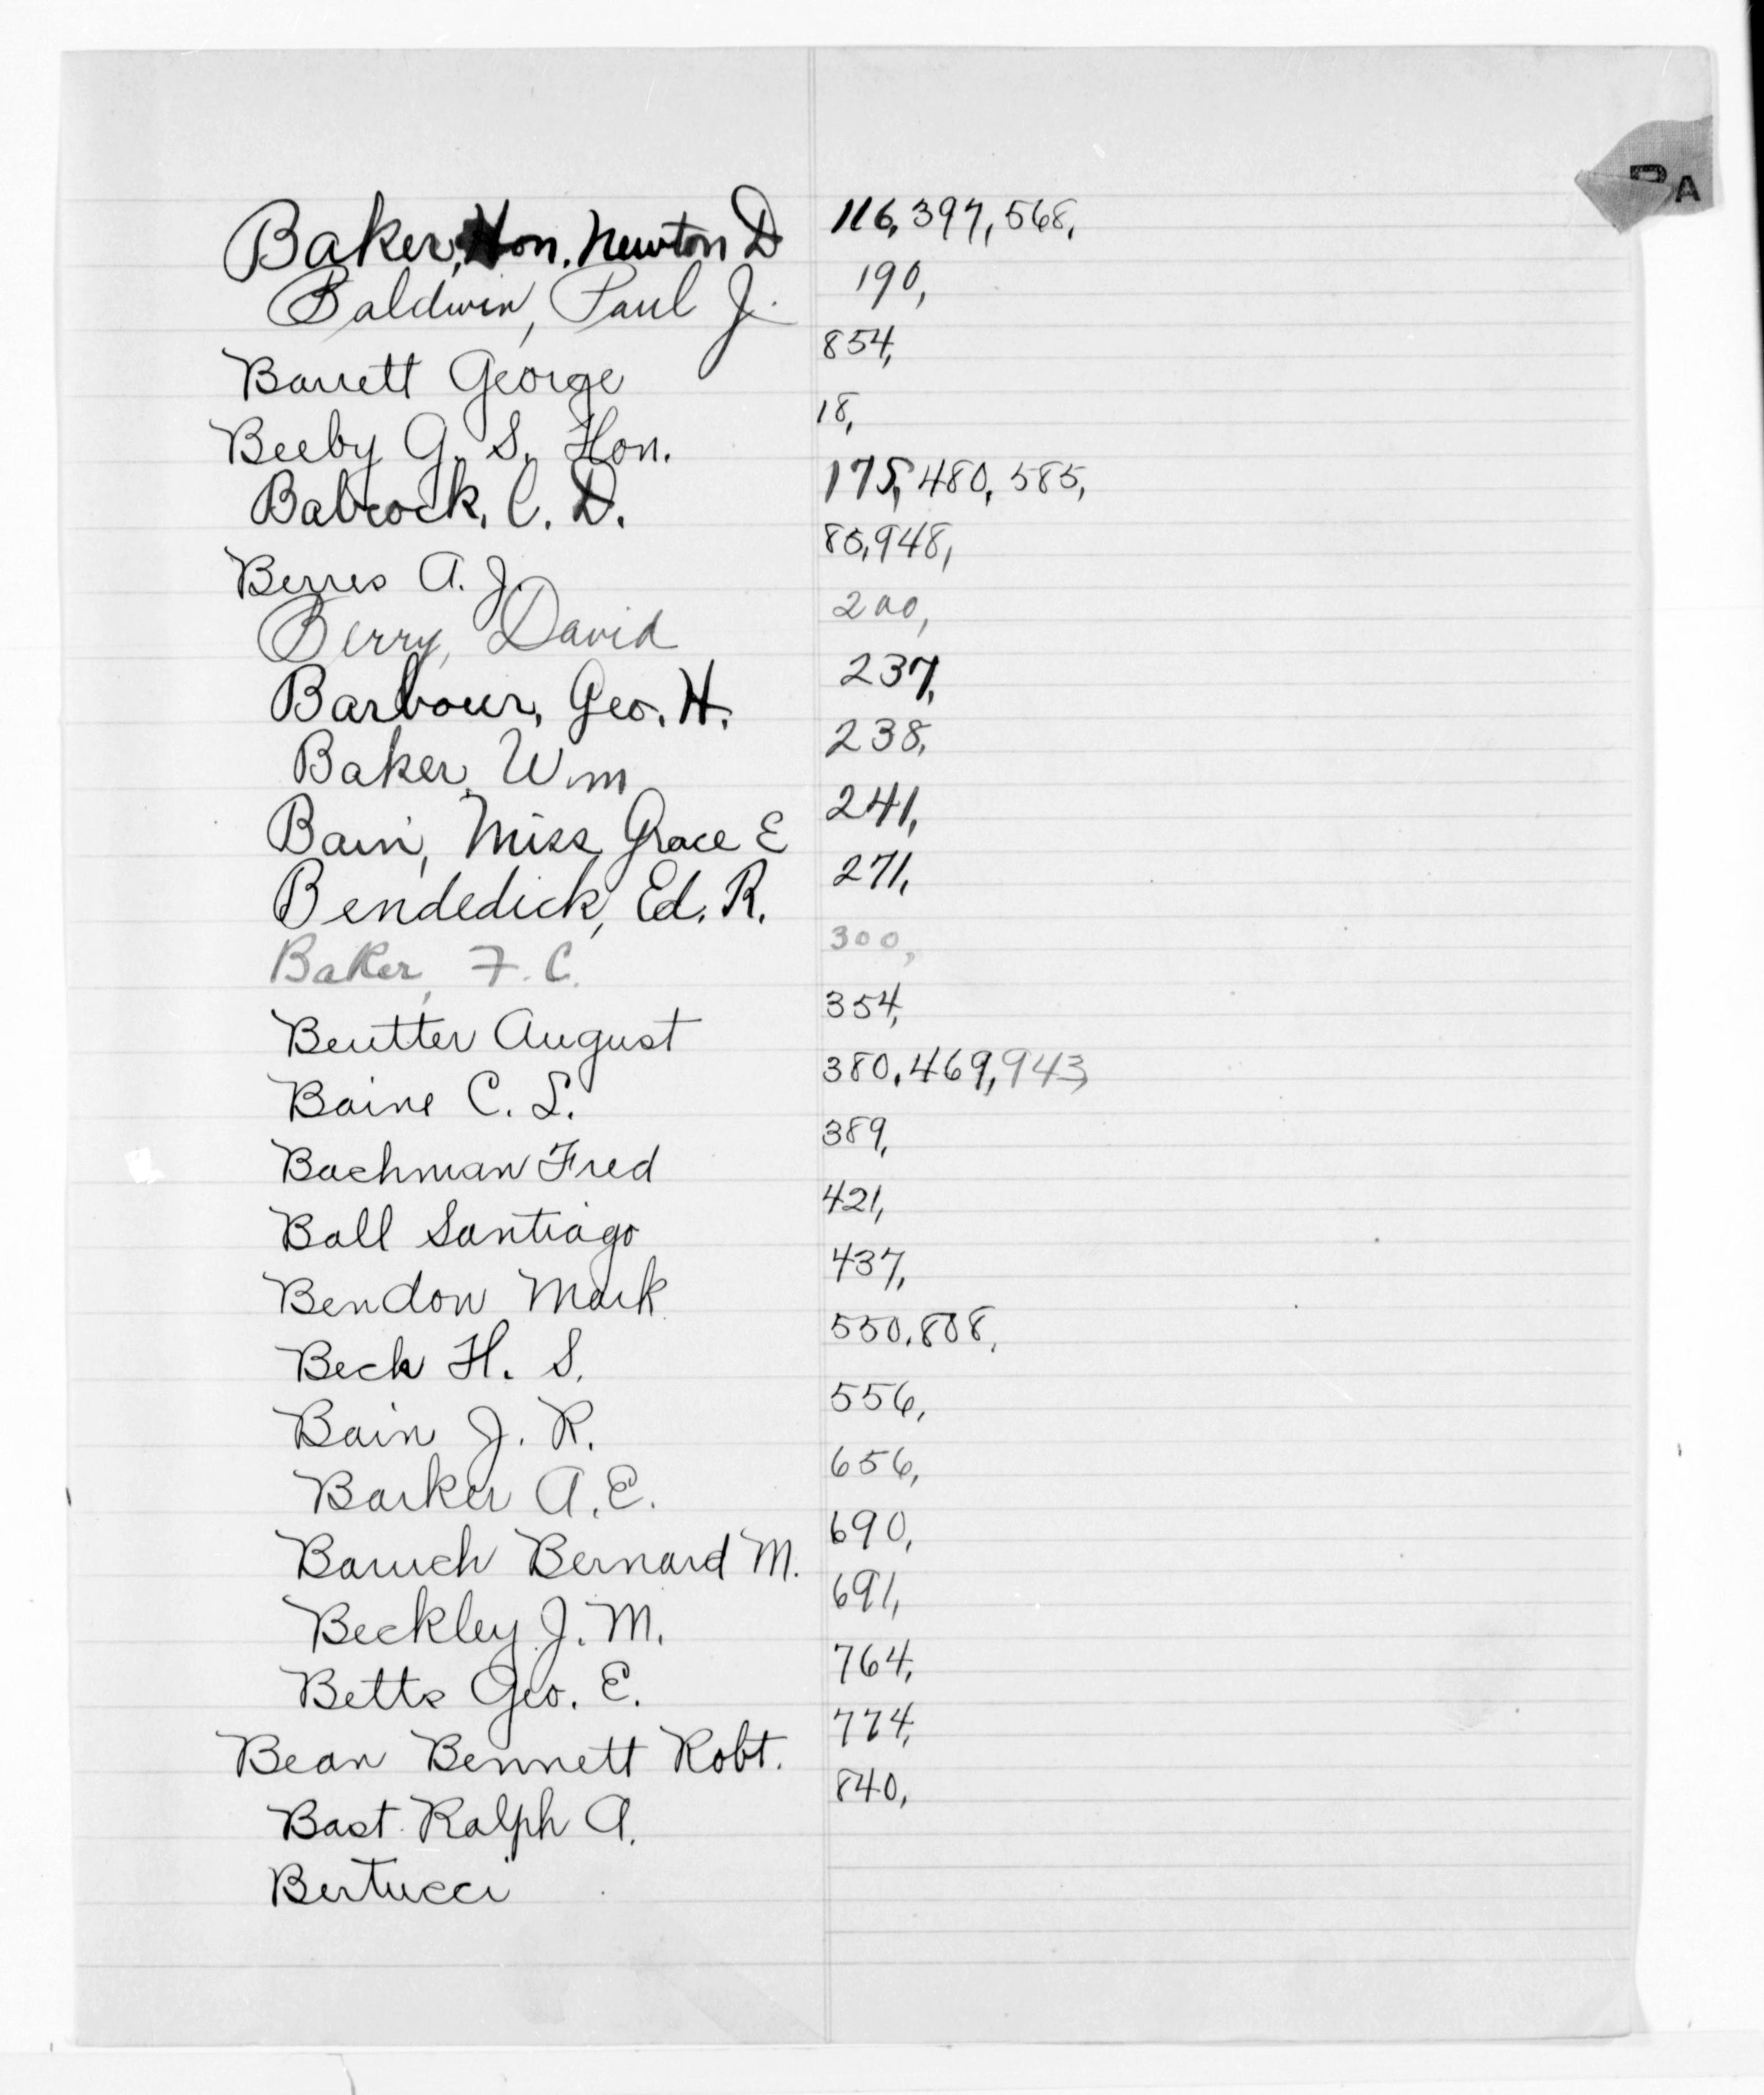 BA
Baker, Hon. Newton D 116, 397, 568,
Baldwin, Paul J. 190,
Barrett George 854,
Beeby G. S. Hon. 18,
Babcock, C. D. 175, 480, 585,
Berres A. J. 85, 948,
Berry, David 200,
Barbour, Geo. H. 237,
Baker, Wm 238,
Bain, Miss Grace E 241,
Bendedick, Ed. R. 271,
Baker, F. C. 300,
Beutter August 354,
Baine C. L. 380, 469, 943,
Bachman Fred 389,
Ball Santiago 421,
Bendon Mark 437,
Beck H. S. 550, 808,
Bain J. R. 556,
Barker A. E. 656,
Baruch Bernard M. 690,
Beckley J. M. 691,
Betts Geo. E. 764,
Bean Bennett Robt. 774,
Bast Ralph A. 840,
Bertucci